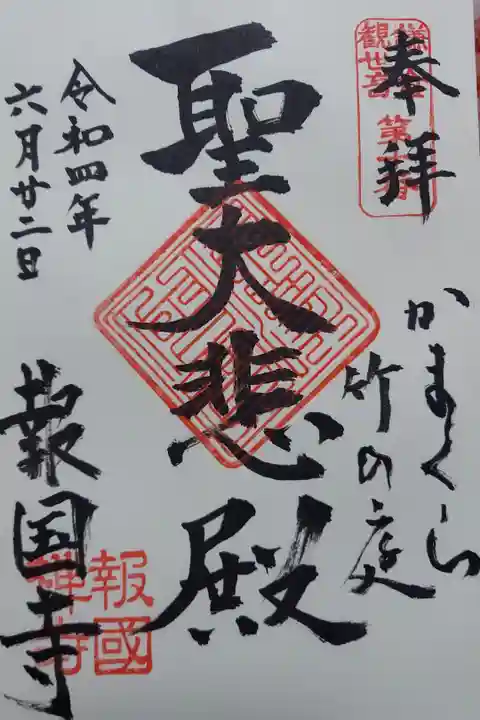 奉拝
鎌倉
観世音
第十番
かまくら
竹の庭
聖大悲殿
令和四年
六月廿二日
報国寺
報國
禅寺